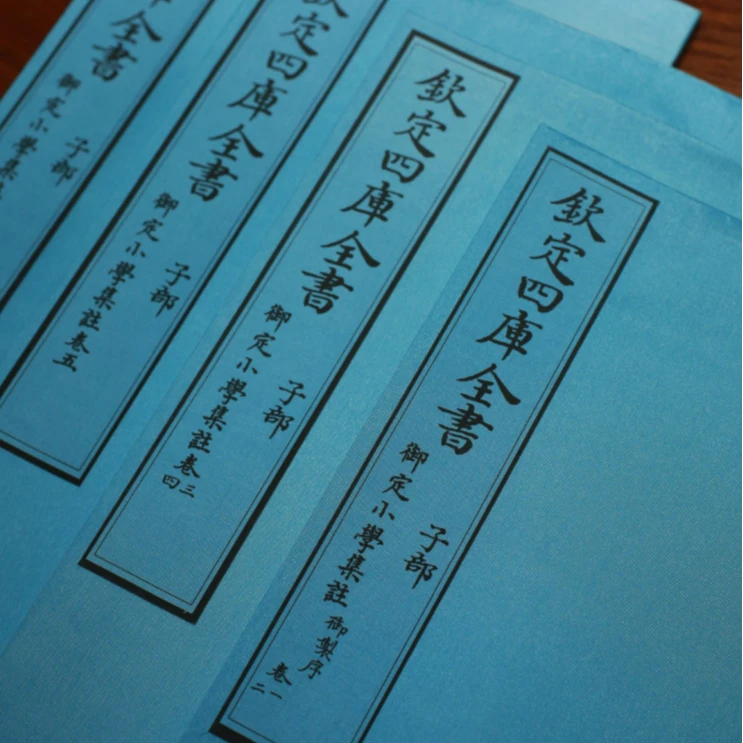 欽定四庫全書
子部
御定小學集註御製序
卷一
二
欽定四庫全書
子部
御定小學集註卷三
四
欽定四庫全書
子部
御定小學集註卷五
全書
子部
御定小學集